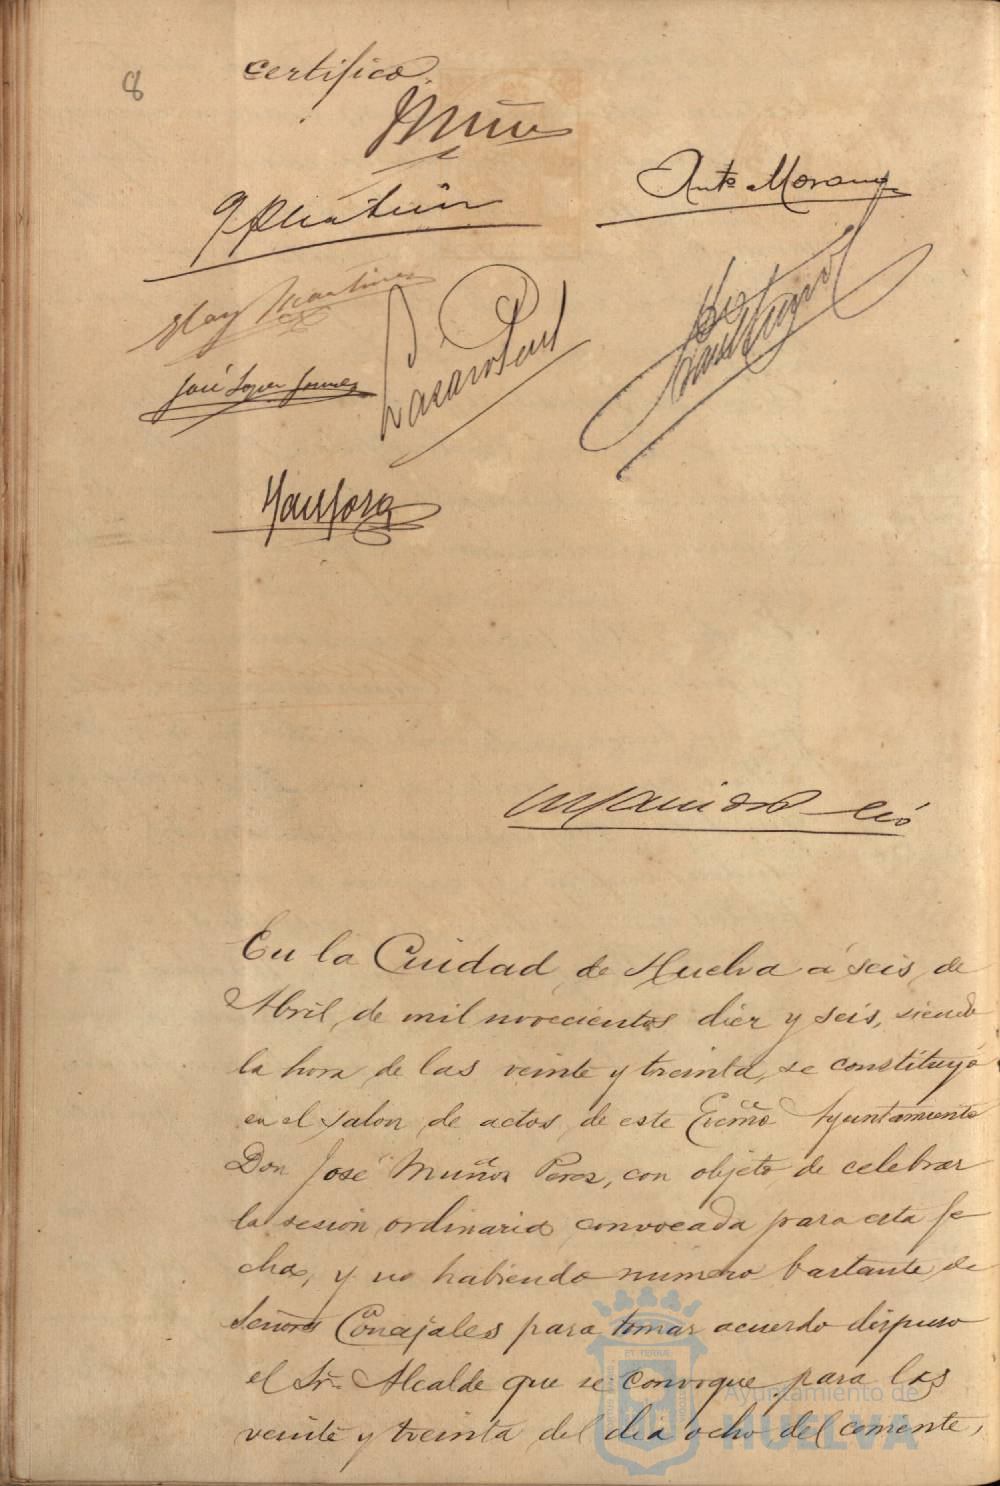 8
certifico.
Muñoz
Anto Moreno
Martinez
José Lopez Gomez
Lazaro
En la Cuidad de Huelva á seis de
Abril de mil novecientos diez y seis, siendo
la hora de las veinte y treinta, se constituyó
en el salon de actos de este Excmo Ayuntamiento
Don José Muñoz Perez, con objeto de celebrar
la sesion ordinaria convocada para esta fe
cha, y no habiendo numero bastante de
Señores Concejales para tomar acuerdo dispuso
el Sr. Alcalde que se convoque para las
veinte y treinta del dia ocho del corriente,
Ayuntamiento de
HUELVA